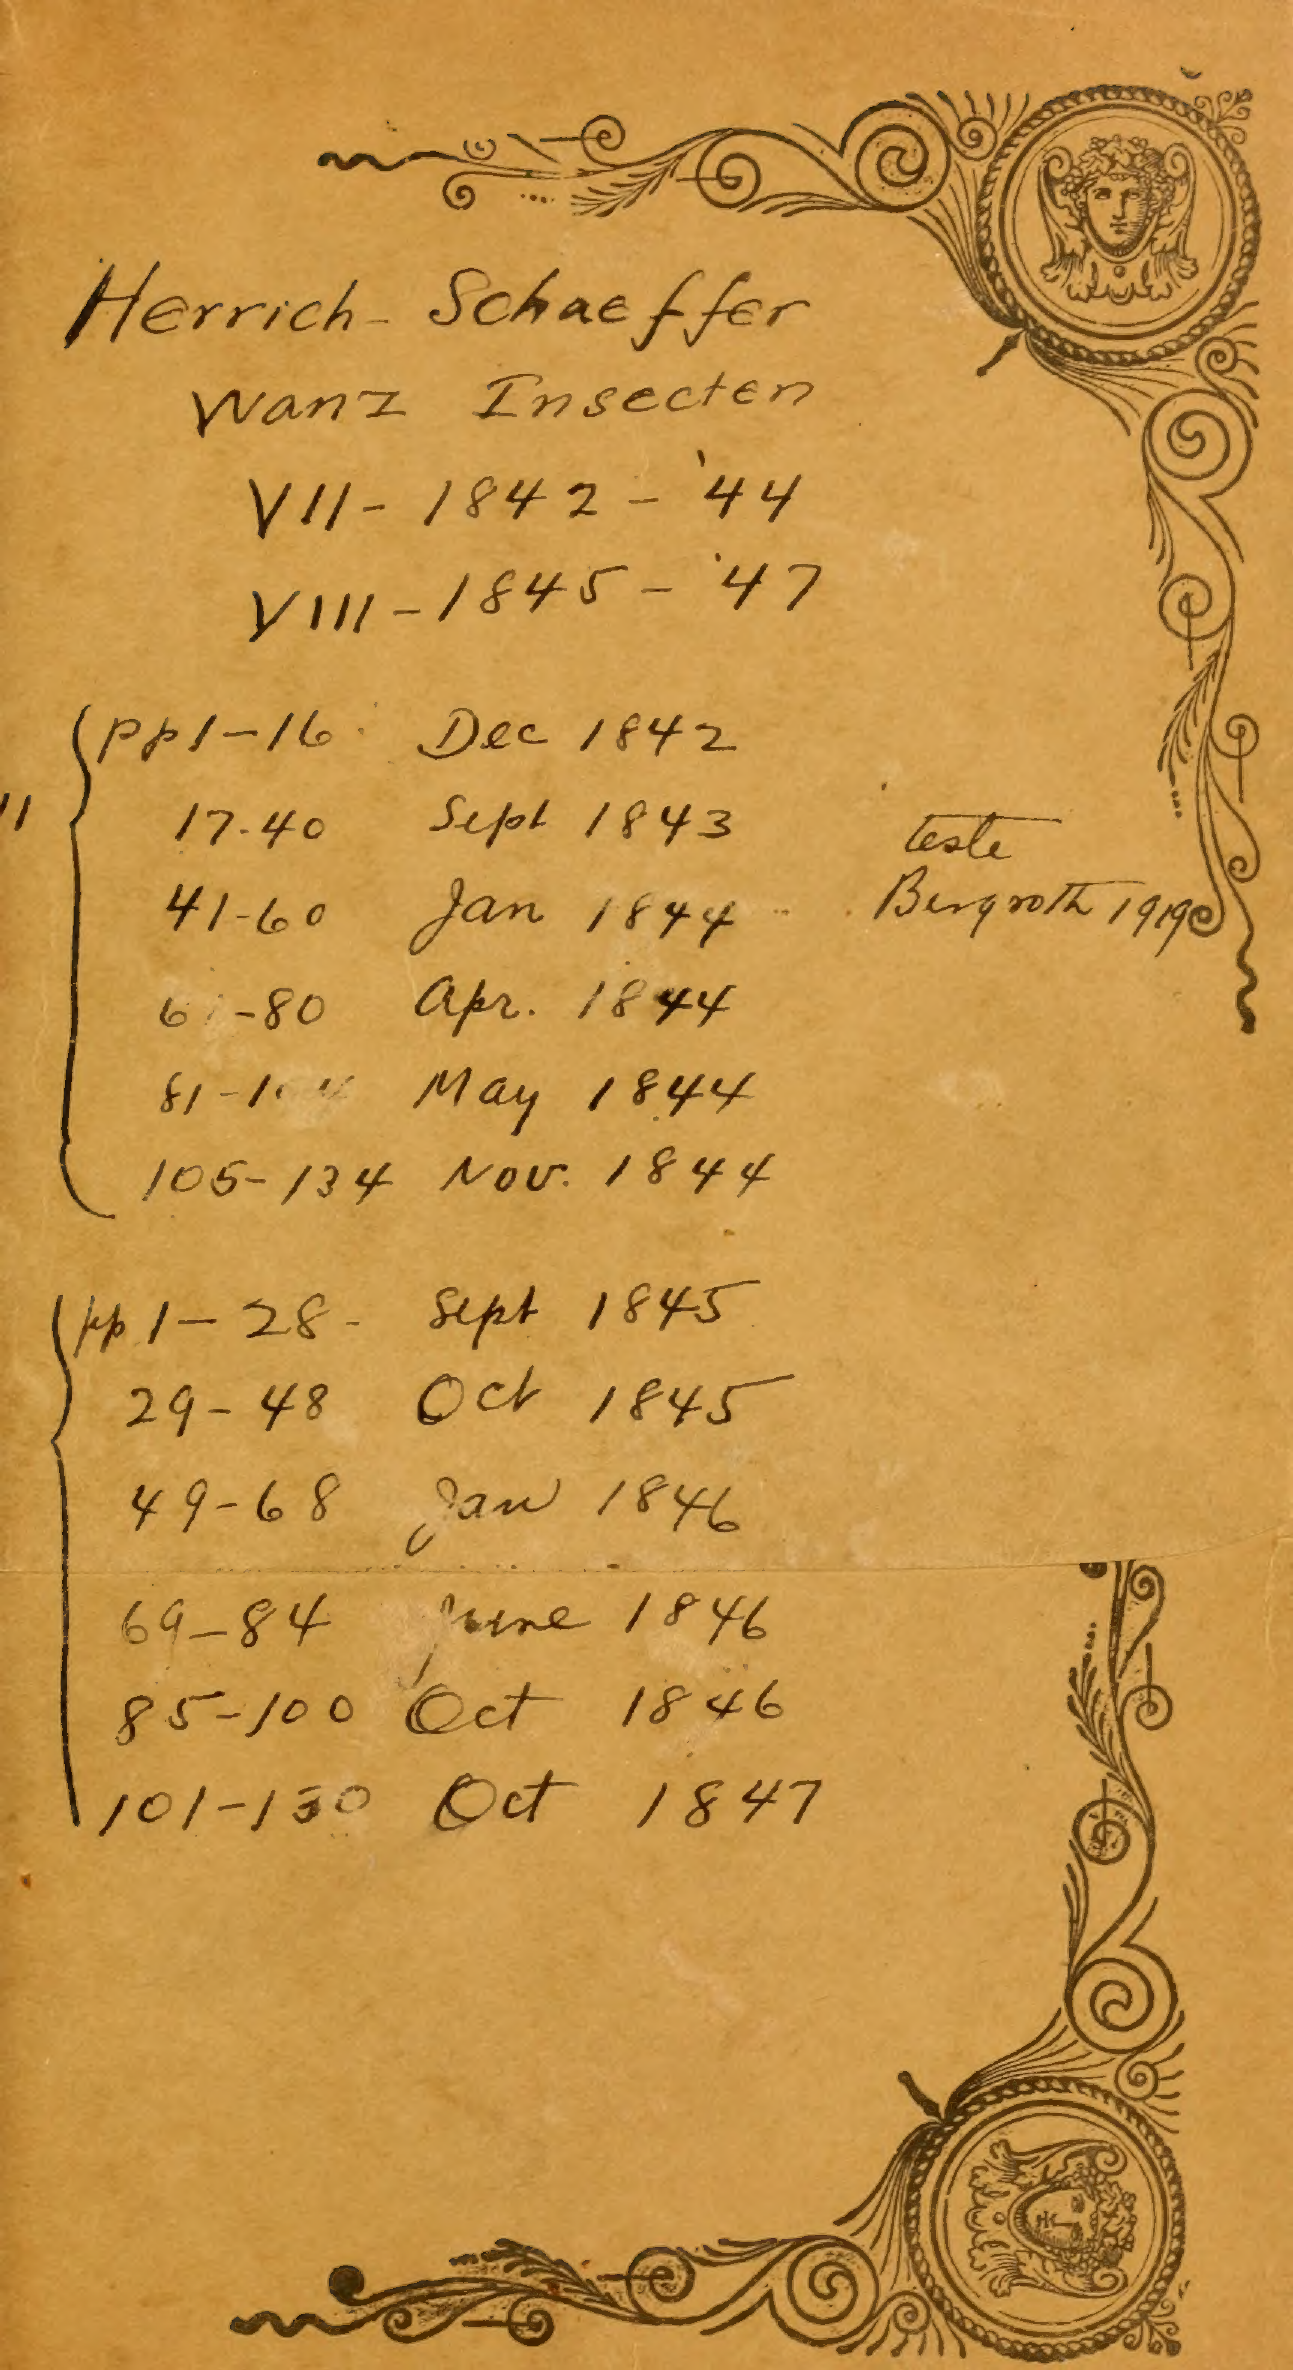 Herrich-Schaeffer
Wanz Insecten
VII-1842-'44
VIII-1845-'47
pp 1-16 Dec 1842
11 17.40 Sept 1843 teste
41-60 Jan 1844 Bergroth 1919
61-80 Apr. 1844
81-104 May 1844
105-134 Nov. 1844
pp 1-28- Sept 1845
29-48 Oct 1845
49-68 Jan 1846
69-84 June 1846
85-100 Oct 1846
101-130 Oct 1847